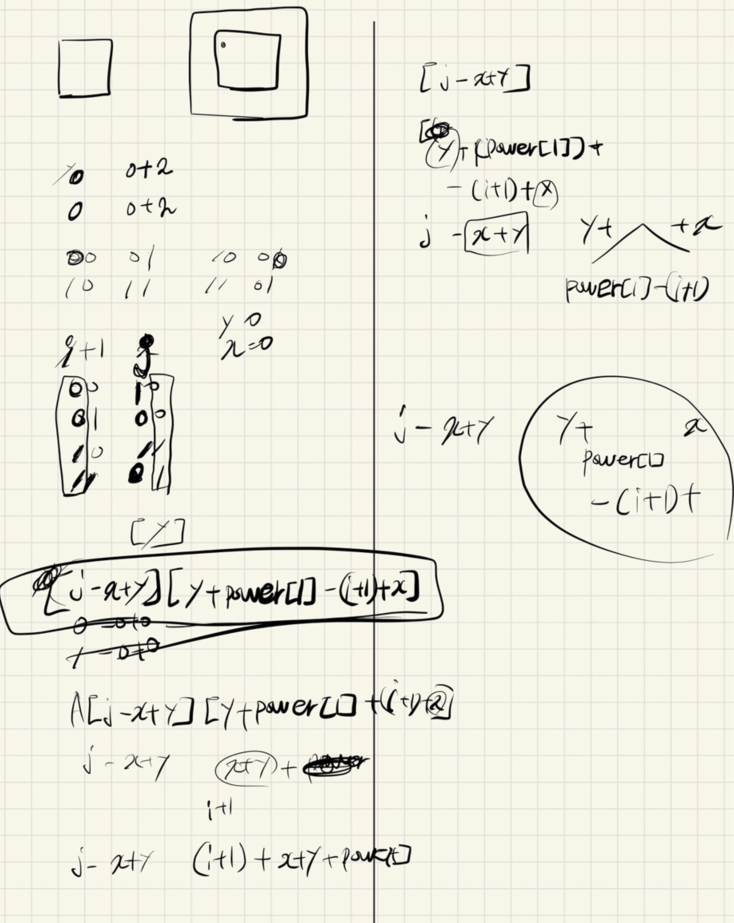 0 0+2
0 0+2
00 01 10 00
10 11 11 01
y 0
x=0
i+1 j
00 10
01 00
10 11
11 01
[y]
[j-x+y][y+power[i]-(i+1)+x]
0-0+0
1-0+0
A[j-x+y][y+power[i]+(i+1)+x]
j-x+y (x+y)+
i+1
j-x+y (i+1)+x+y+power[i]
[j-x+y]
[y+(power[i])+
-(i+1)+x
j-x+y
y+ +x
power[i]-(i+1)
j-x+y
y+ x
power[i]
-(i+1)+